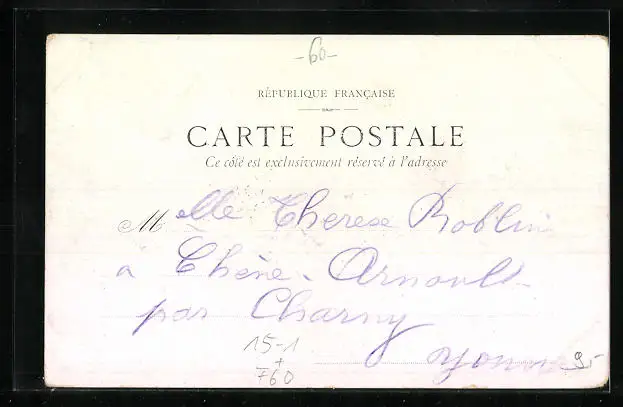 -60-
RÉPUBLIQUE FRANÇAISE
CARTE POSTALE
Ce côté est exclusivement réservé à l'adresse
Melle Thérèse Roblin
à Chêne-Arnoult
par Charny
Yonne
15-1
+
760